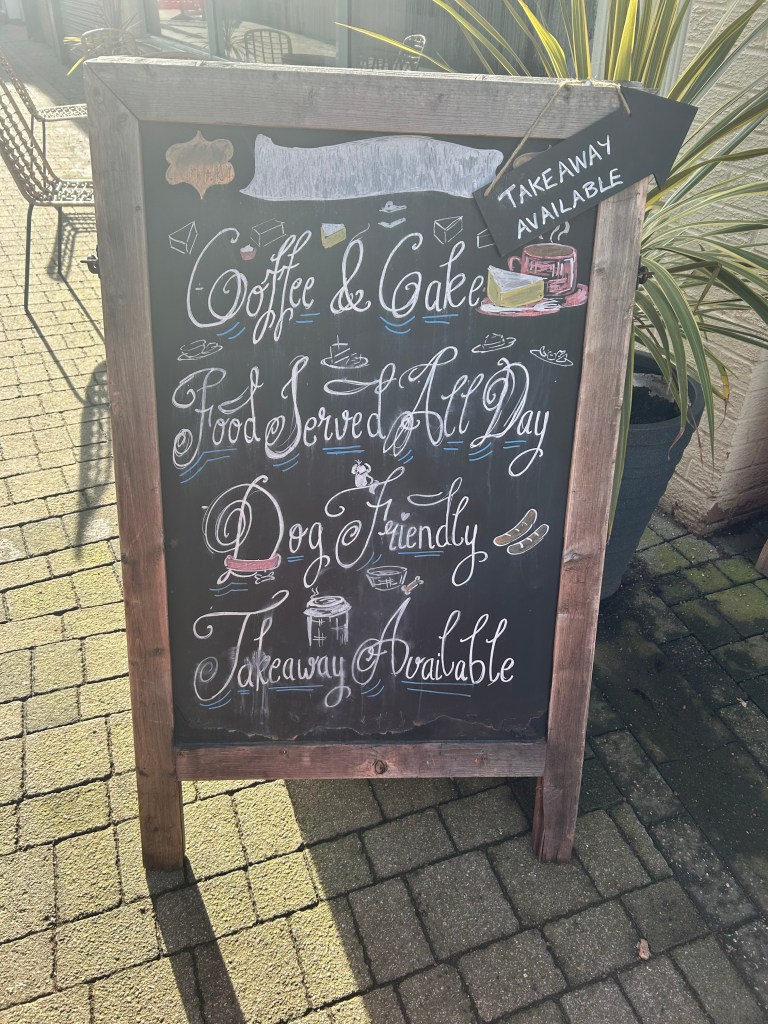 TAKEAWAY
AVAILABLE
Coffee & Cake
Food Served All Day
Dog Friendly
Takeaway Available